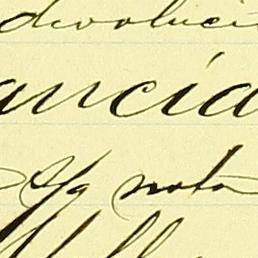 devoluci
ancia
s/g nota